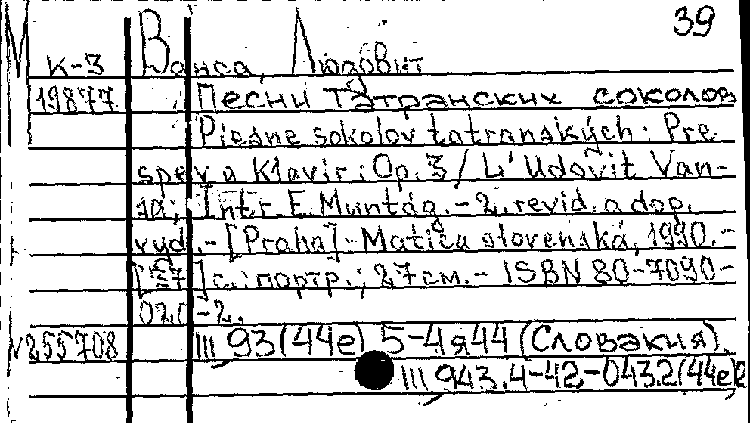 39
М К-3 Ванса, Людовит
19877 Песни татранских соколов
Piesne sokolov tatranských: Pre
spev a klavír: Op. 3 / L'Udovit Van-
sa; Intr. E. Muntág. - 2. revid. a dop.
vyd. - [Praha]: Matica slovenská, 1990. -
с.: портр.; 27 см. - ISBN 80-7090-
-2.
N255708 III 93(44е) 5-4я44 (Словакия).
III 943.4-42-043.2(44е)2